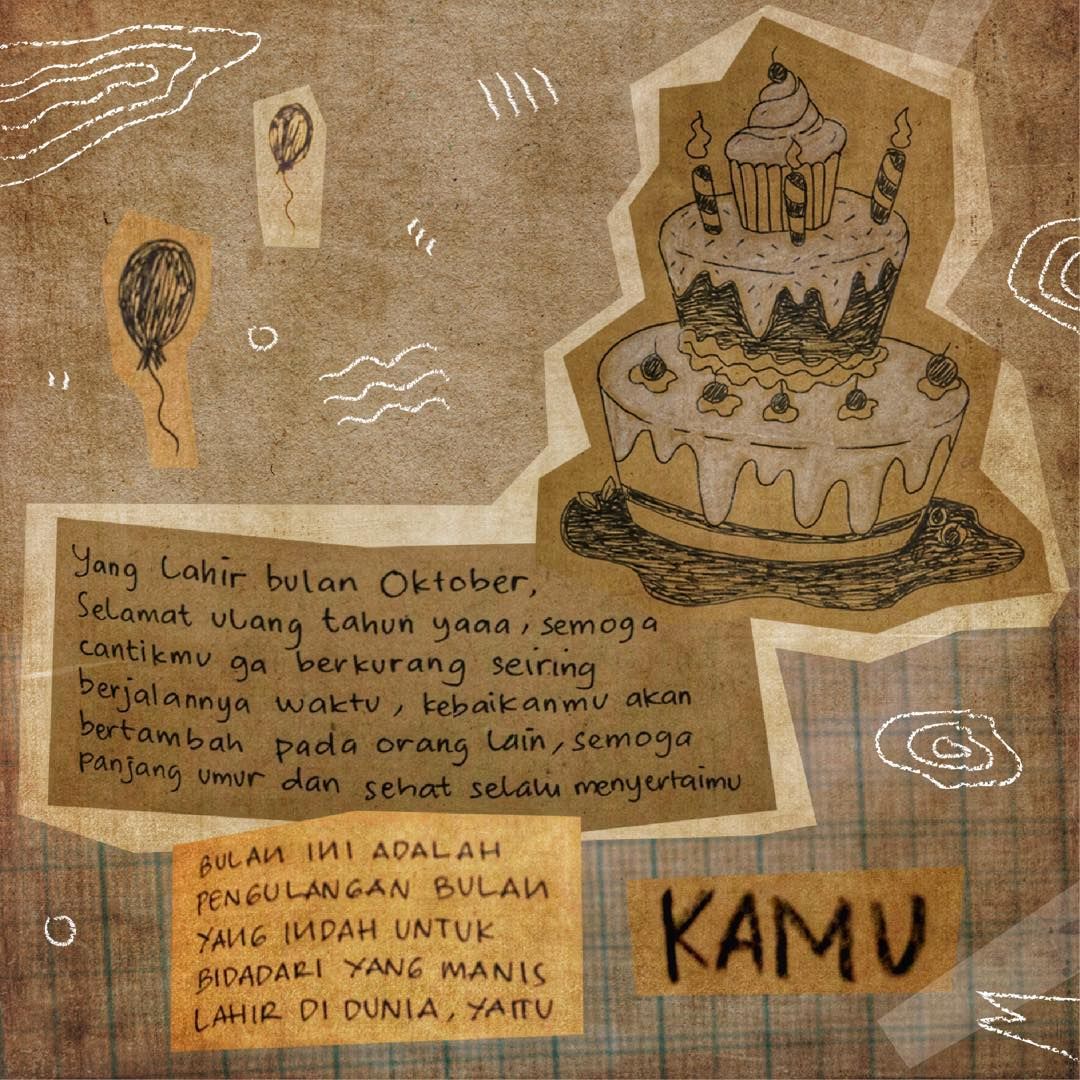 Yang Lahir bulan Oktober,
Selamat ulang tahun yaaa, semoga
cantikmu ga berkurang seiring
berjalannya waktu, kebaikanmu akan
bertambah pada orang lain, semoga
panjang umur dan sehat selalu menyertaimu
BULAN INI ADALAH
PENGULANGAN BULAN
YANG INDAH UNTUK
BIDADARI YANG MANIS
LAHIR DI DUNIA, YAITU
KAMU